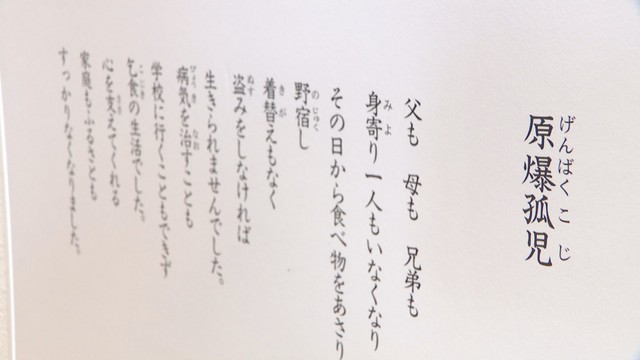 原爆孤児
げんばくこじ
父も 母も 兄弟も
身寄り一人もいなくなり
みよ
その日から食べ物をあさり
野宿し
のじゅく
着替えもなく
きが
盗みをしなければ
ぬす
生きられませんでした。
病気を治すことも
びょうき なお
学校に行くこともできず
乞食の生活でした。
こじき
心を支えてくれる
ささ
家庭もふるさとも
すっかりなくなりました。